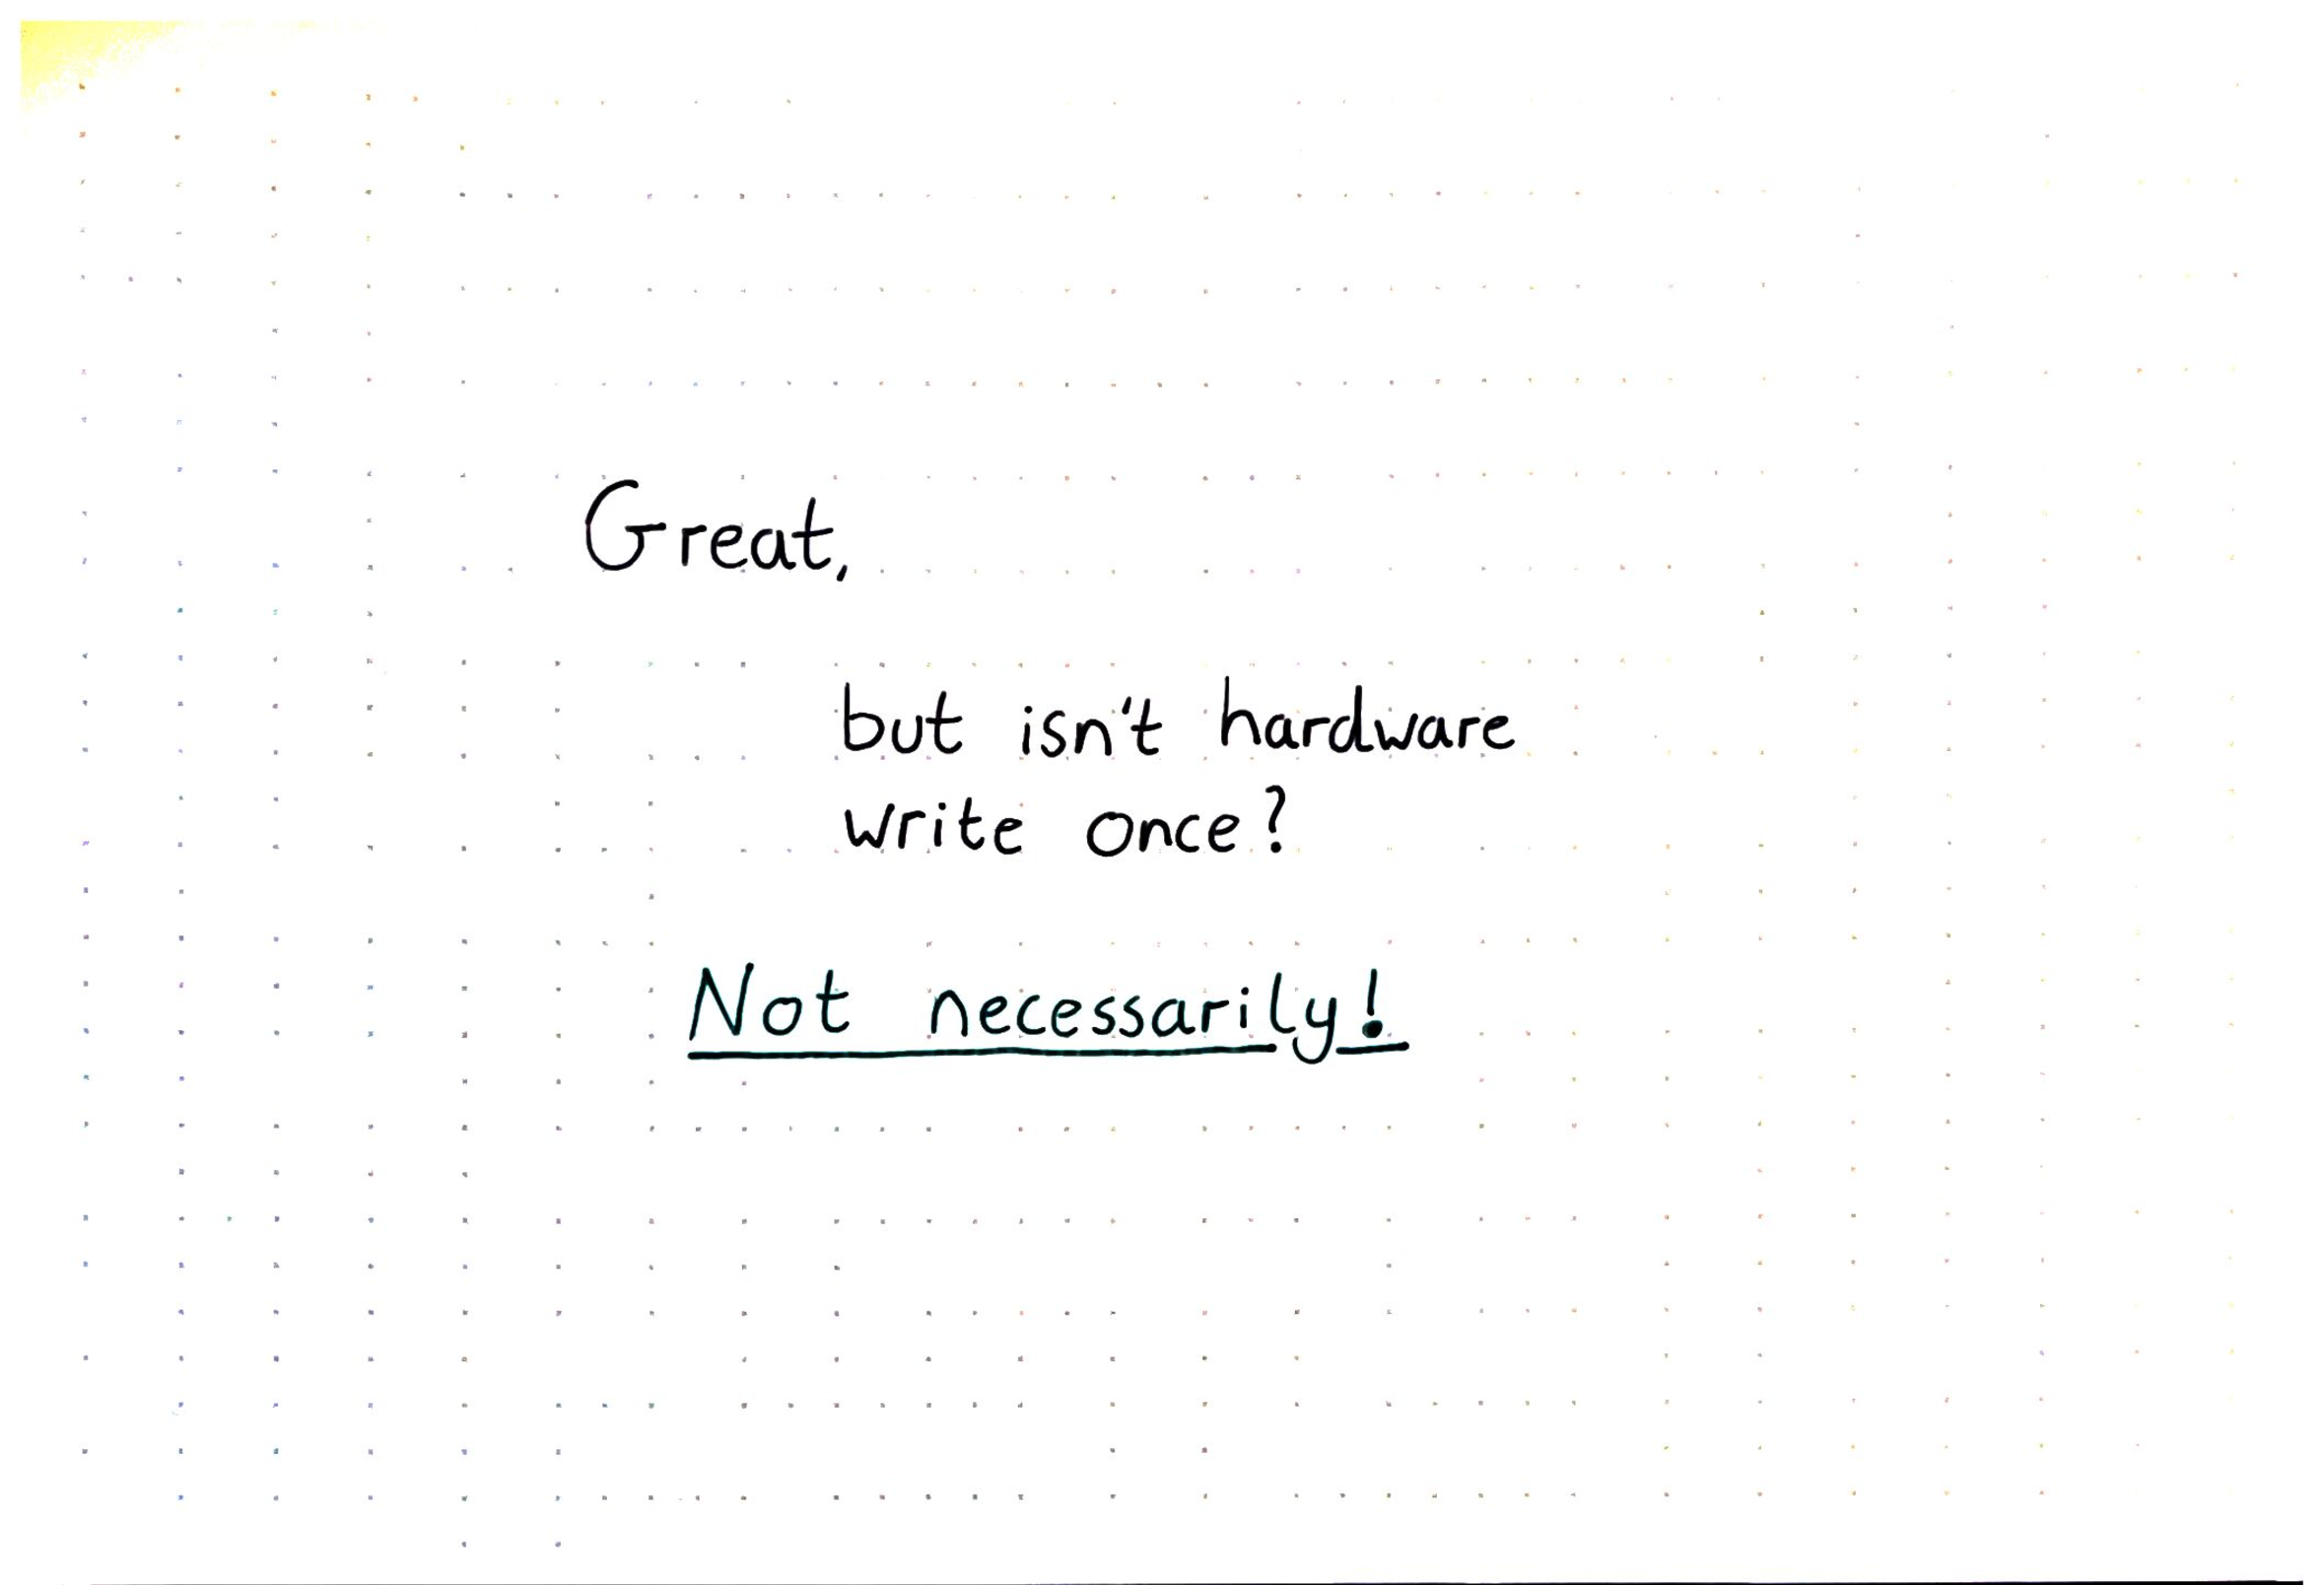 Great,
but isn't hardware
write once?
Not necessarily!